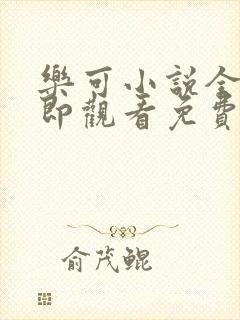 樂可小說全
即觀看免費
俞茂鲲